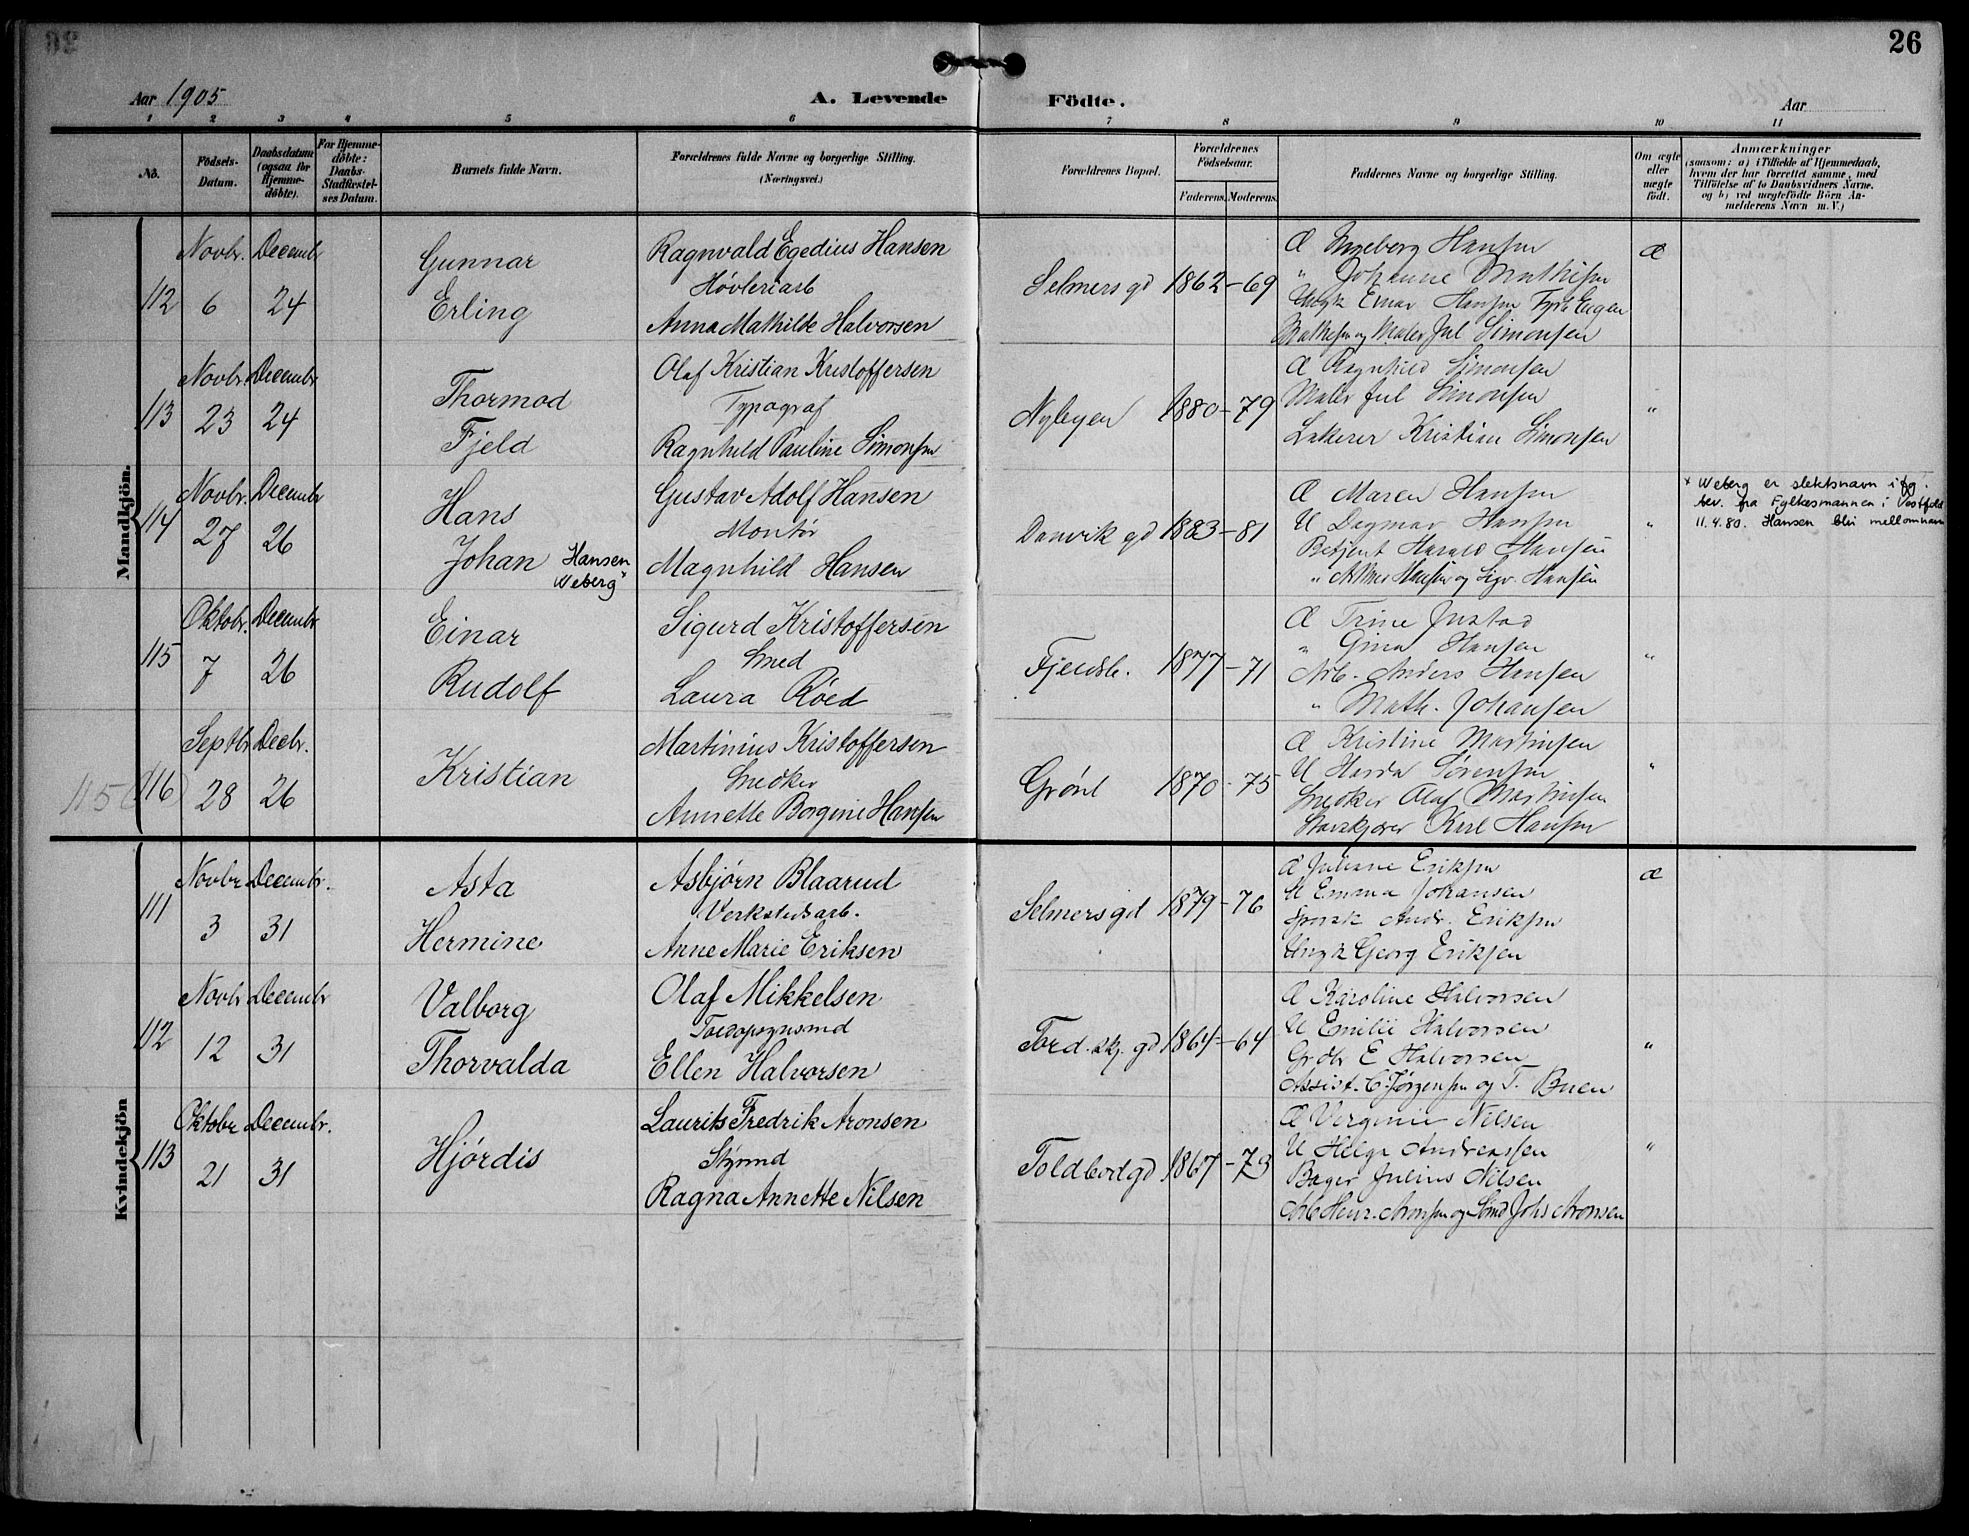 26
Aar 1905
A. Levende Födte.
Aar
1 2 3 4 5 6 7 8 9 10 11
No.
Födsels-Datum.
Daabsdatum (ogsaa for Hjemme-döbte).
For Hjemme-döbte: Daabs-Stadfæstel-ses Datum.
Barnets fulde Navn.
Forældrenes fulde Navne og borgerlige Stilling. (Næringsvei.)
Forældrenes Bopæl.
Forældrenes Födselsaar.
Faderens. Moderens.
Faddernes Navne og borgerlige Stilling.
Om ægte eller uægte födt.
Anmærkninger
(saasom: a) i Tilfælde af Hjemmedaab,
hvem der har forrettet samme, med
Tilföielse af to Daabsvidners Navne.
og b) ved uægtefödte Börn An-
melderens Navn m. V.)
Mandkjön.
112
Novbr. 6
Decembr 24
Gunnar
Erling
Ragnvald Egedius Hansen
Høvleriarb
Anna Mathilde Halvorsen
Selmersgd 1862-69
Æ Ingeborg Hansen
" Johanne Mathisen
Ungk Einar Hansen Fyrb Eugen
Mathisen og Maler Jul Simonsen
Æ
113
Novbr 23
Decembr 24
Thormod
Fjeld
Olaf Kristian Kristoffersen
Typograf
Ragnhild Pauline Simonsen
Nybyen 1880-79
Æ Ragnhild Simonsen
Maler Jul Simonsen
Lakerer Kristian Simonsen
"
114
Novbr. 27
Decembr 26
Hans
Johan Hansen
Weberg
Gustav Adolf Hansen
Montør
Magnhild Hansen
Danvik gd 1883-81
Æ Maren Hansen
U Dagmar Hansen
Betjent Harald Hansen
" Hansen og Sigv. Hansen
"
x Weberg er slektsnavn ifg.
bev. fra Fylkesmannen i Vestfold
11.4.80. Hansen blir mellomnavn
115
Oktobr. 7
Decembr 26
Einar
Rudolf
Sigurd Kristoffersen
Smed
Laura Røed
Fjeldsb. 1877-71
Æ Trine Justad
" Gina Hansen
Arb. Anders Hansen
" Math. Johansen
"
115 (116)
Septbr 28
Decbr. 26
Kristian
Martinius Kristoffersen
Snedker
Annette Borgine Hansen
Grønl 1870-75
Æ Kristine Martinsen
U Harda Sørensen
Snedker Olaf Martinsen
Karl Hansen
"
Kvindekjön
111
Novbr 3
Decembr. 31
Asta
Hermine
Asbjørn Blaarud
Verkstedsarb.
Anne Marie Eriksen
Selmersgd 1879-76
Æ Juliane Eriksen
U Emma Johansen
Andr. Eriksen
Ungk Georg Eriksen
Æ
112
Novbr 12
Decembr 31
Valborg
Thorvalda
Olaf Mikkelsen
Toldopsynsmd
Ellen Halvorsen
Tord.skj. gd 1864-64
Æ Karoline Halvorsen
U Emilie Halvorsen
Grdbr E Halvorsen
Assist. C. Jørgensen og T. Buen
"
113
Oktobr 21
Decembr. 31
Hjørdis
Laurits Fredrik Aronsen
Styrmd
Ragna Annette Nilsen
Toldbodgd 1867-73
Æ Verginie Nilsen
U Helga Andreassen
Bager Julius Nilsen
Arb Henr. Aronsen og Sömd Johs Aronsen
"